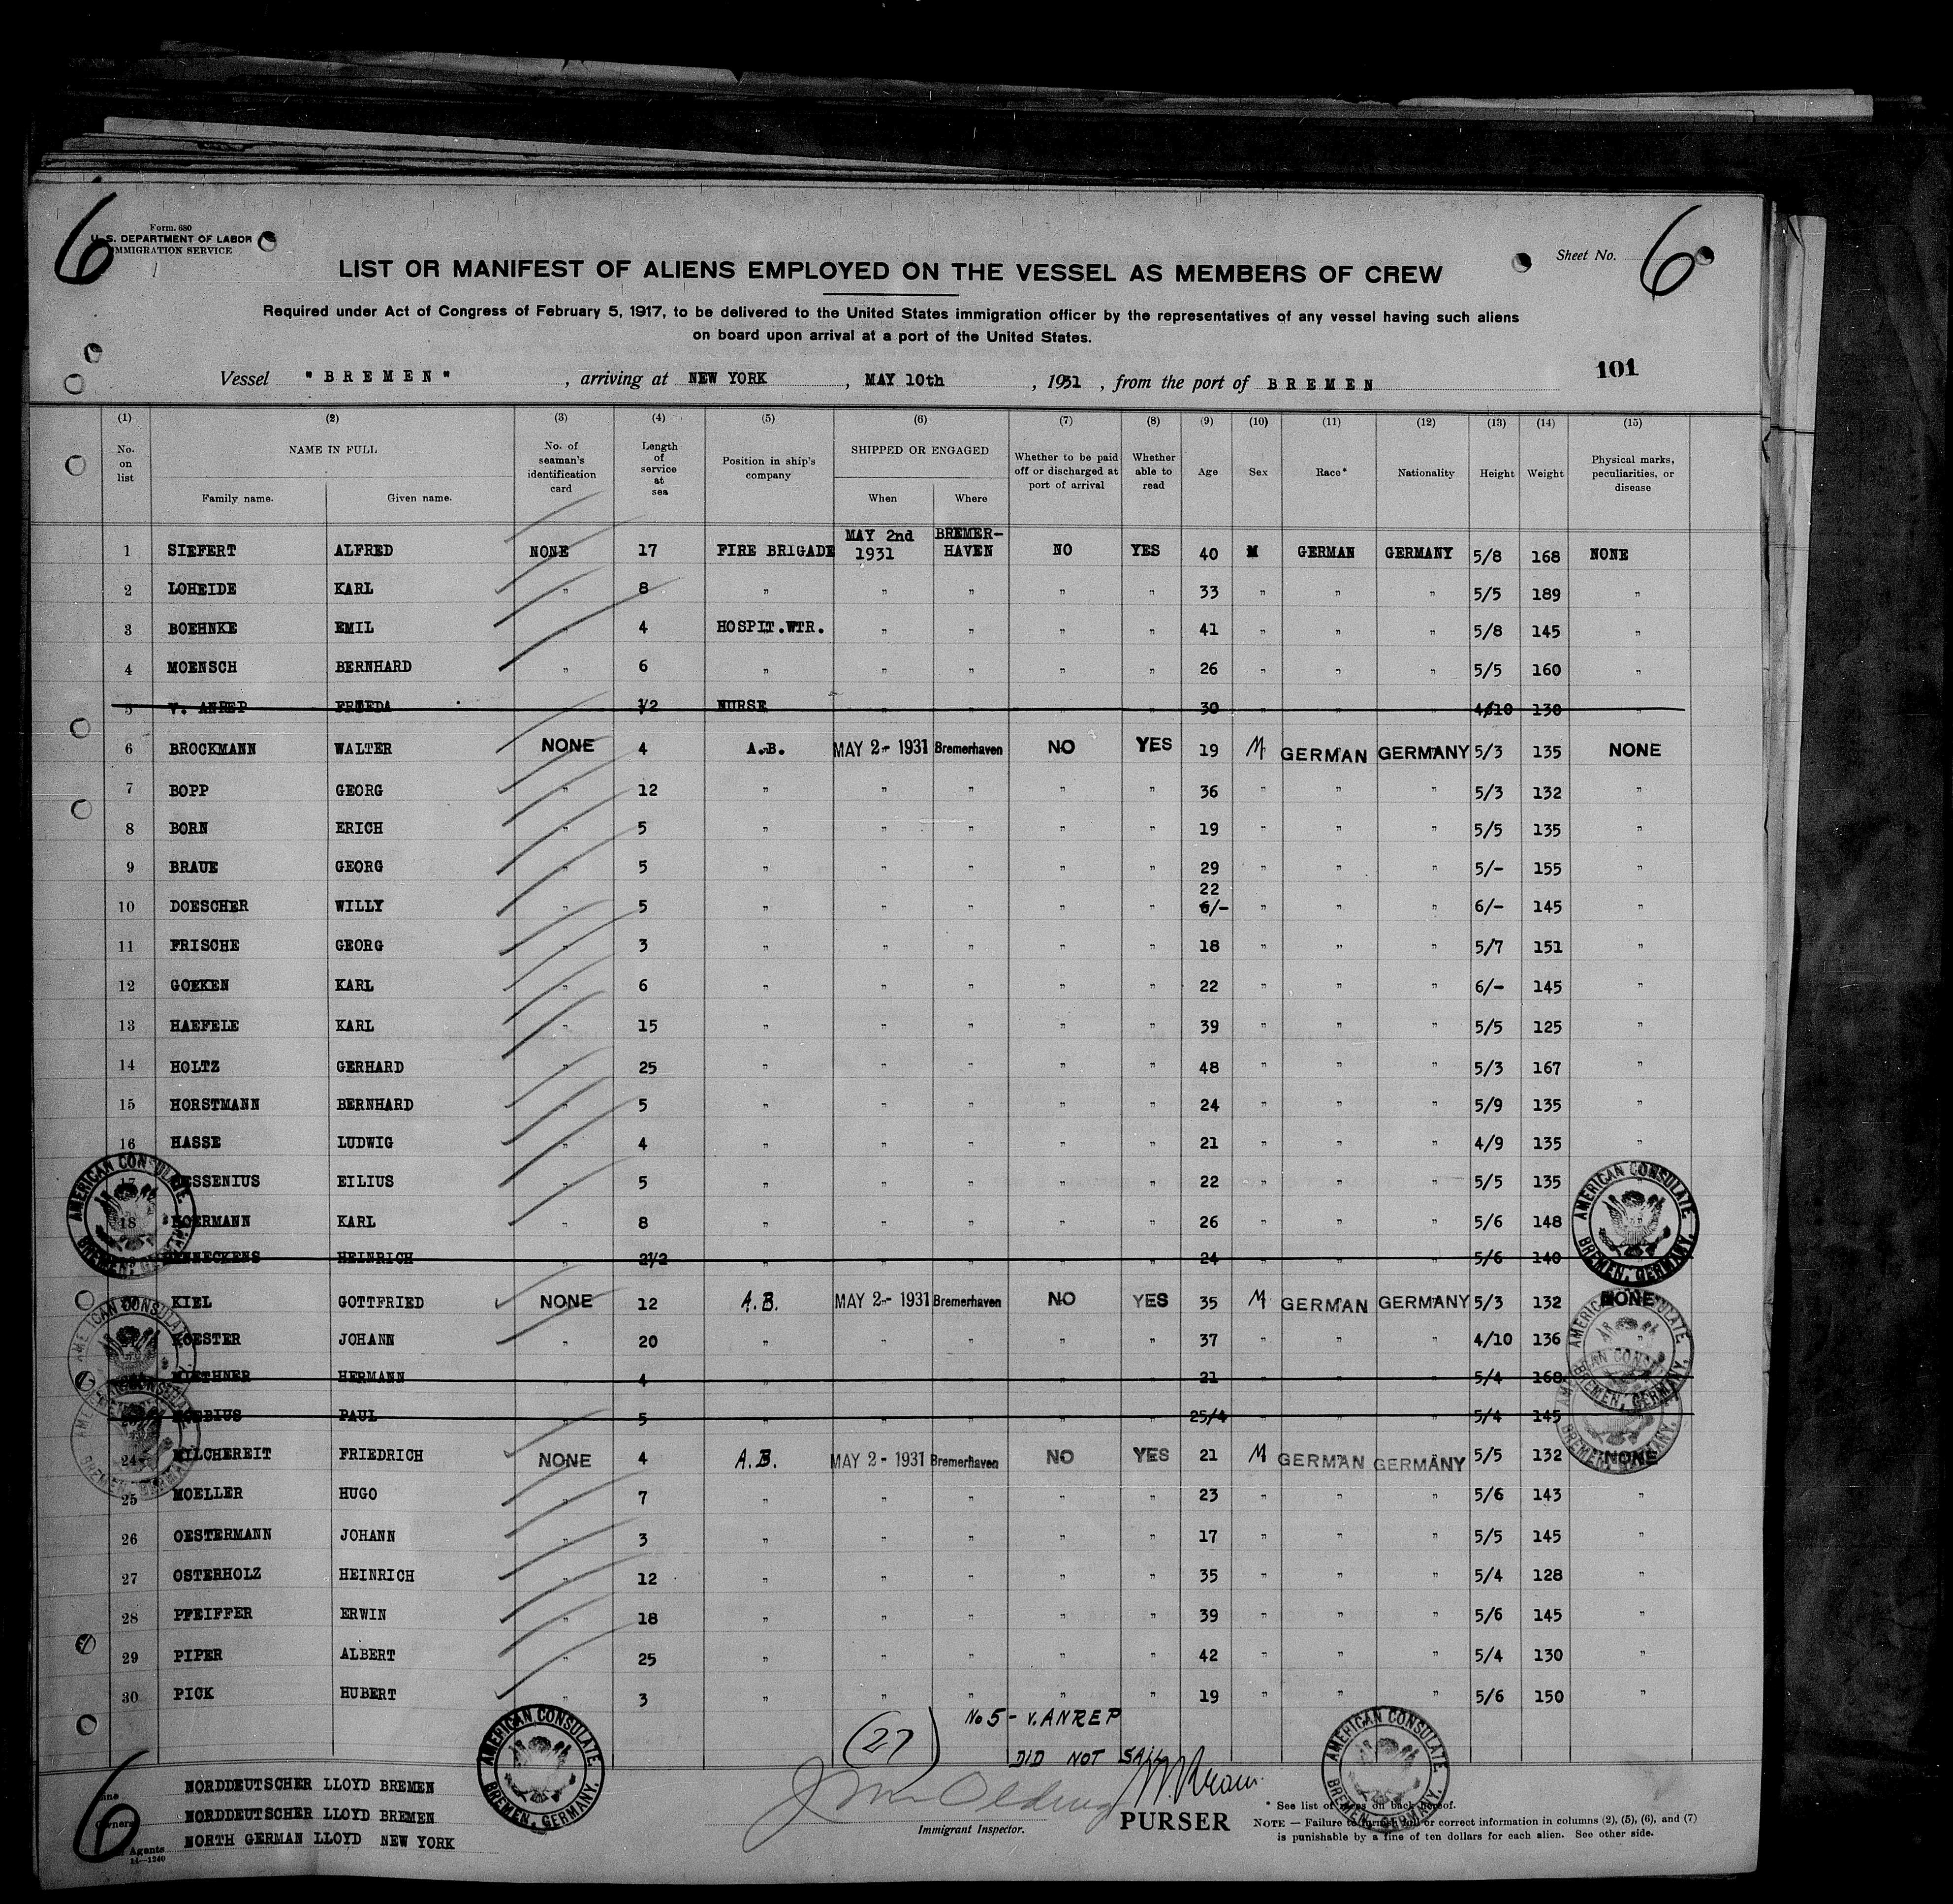 6
Form. 680
U. S. DEPARTMENT OF LABOR
IMMIGRATION SERVICE
Sheet No. 6
LIST OR MANIFEST OF ALIENS EMPLOYED ON THE VESSEL AS MEMBERS OF CREW
Required under Act of Congress of February 5, 1917, to be delivered to the United States immigration officer by the representatives of any vessel having such aliens
on board upon arrival at a port of the United States.
101
Vessel "BREMEN", arriving at NEW YORK, MAY 10th, 1931, from the port of BREMEN
(1) (2) (3) (4) (5) (6) (7) (8) (9) (10) (11) (12) (13) (14) (15)
No. on list NAME IN FULL Family name. Given name. No. of seaman's identification card Length of service at sea Position in ship's company SHIPPED OR ENGAGED When Where Whether to be paid off or discharged at port of arrival Whether able to read Age Sex Race* Nationality Height Weight Physical marks, peculiarities, or disease
1 SIEFERT ALFRED NONE 17 FIRE BRIGADE MAY 2nd 1931 BREMER-HAVEN NO YES 40 M GERMAN GERMANY 5/8 168 NONE
2 LOHEIDE KARL " 8 " " " " " 33 " " " 5/5 189 "
3 BOEHNKE EMIL " 4 HOSPIT.WTR. " " " " 41 " " " 5/8 145 "
4 MOENSCH BERNHARD " 6 " " " " " 26 " " " 5/5 160 "
5 V. ANREP FRIEDA 1/2 NURSE " " " " 30 " " " 4/10 130 "
6 BROCKMANN WALTER NONE 4 A.B. MAY 2- 1931 Bremerhaven NO YES 19 M GERMAN GERMANY 5/3 135 NONE
7 BOPP GEORG " 12 " " " " " 36 " " " 5/3 132 "
8 BORN ERICH " 5 " " " " " 19 " " " 5/5 135 "
9 BRAUE GEORG " 5 " " " " " 29 " " " 5/- 155 "
22
10 DOESCHER WILLY " 5 " " " " " 6/- " " " 6/- 145 "
11 FRISCHE GEORG " 3 " " " " " 18 " " " 5/7 151 "
12 GOEKEN KARL " 6 " " " " " 22 " " " 6/- 145 "
13 HAEFELE KARL " 15 " " " " " 39 " " " 5/5 125 "
14 HOLTZ GERHARD " 25 " " " " " 48 " " " 5/3 167 "
15 HORSTMANN BERNHARD " 5 " " " " " 24 " " " 5/9 135 "
16 HASSE LUDWIG " 4 " " " " " 21 " " " 4/9 135 "
17 EILIUS " 5 " " " " " 22 " " " 5/5 135
18 KARL " 8 " " " " " 26 " " " 5/6 148
HEINRICH " 2 1/2 " " " " " 24 " " " 5/6 140
KIEL GOTTFRIED NONE 12 A.B. MAY 2- 1931 Bremerhaven NO YES 35 M GERMAN GERMANY 5/3 132 NONE
KOESTER JOHANN " 20 " " " " " 37 " " " 4/10 136 "
HERMANN " 4 " " " " " 21 " " " 5/4 168
MOEBIUS PAUL " 5 " " " " " 25/4 " " " 5/4 145
24 MILCHEREIT FRIEDRICH NONE 4 A.B. MAY 2- 1931 Bremerhaven NO YES 21 M GERMAN GERMANY 5/5 132 NONE
25 MOELLER HUGO " 7 " " " " " 23 " " " 5/6 143 "
26 OESTERMANN JOHANN " 3 " " " " " 17 " " " 5/5 145 "
27 OSTERHOLZ HEINRICH " 12 " " " " " 35 " " " 5/4 128 "
28 PFEIFFER ERWIN " 18 " " " " " 39 " " " 5/6 145 "
29 PIPER ALBERT " 25 " " " " " 42 " " " 5/4 130 "
30 PICK HUBERT " 3 " " " " " 19 " " " 5/6 150 "
AMERICAN CONSULATE BREMEN, GERMANY.
AMERICAN CONSULATE BREMEN, GERMANY.
AMERICAN CONSULATE BREMEN, GERMANY.
AMERICAN CONSULATE BREMEN, GERMANY.
(27)
No 5 - V. ANREP
DID NOT SAIL
6
NORDDEUTSCHER LLOYD BREMEN
Owners NORDDEUTSCHER LLOYD BREMEN
Agents NORTH GERMAN LLOYD NEW YORK
14—1240
Immigrant Inspector.
PURSER
* See list of races on back hereof.
NOTE — Failure to furnish full or correct information in columns (2), (5), (6), and (7)
is punishable by a fine of ten dollars for each alien. See other side.